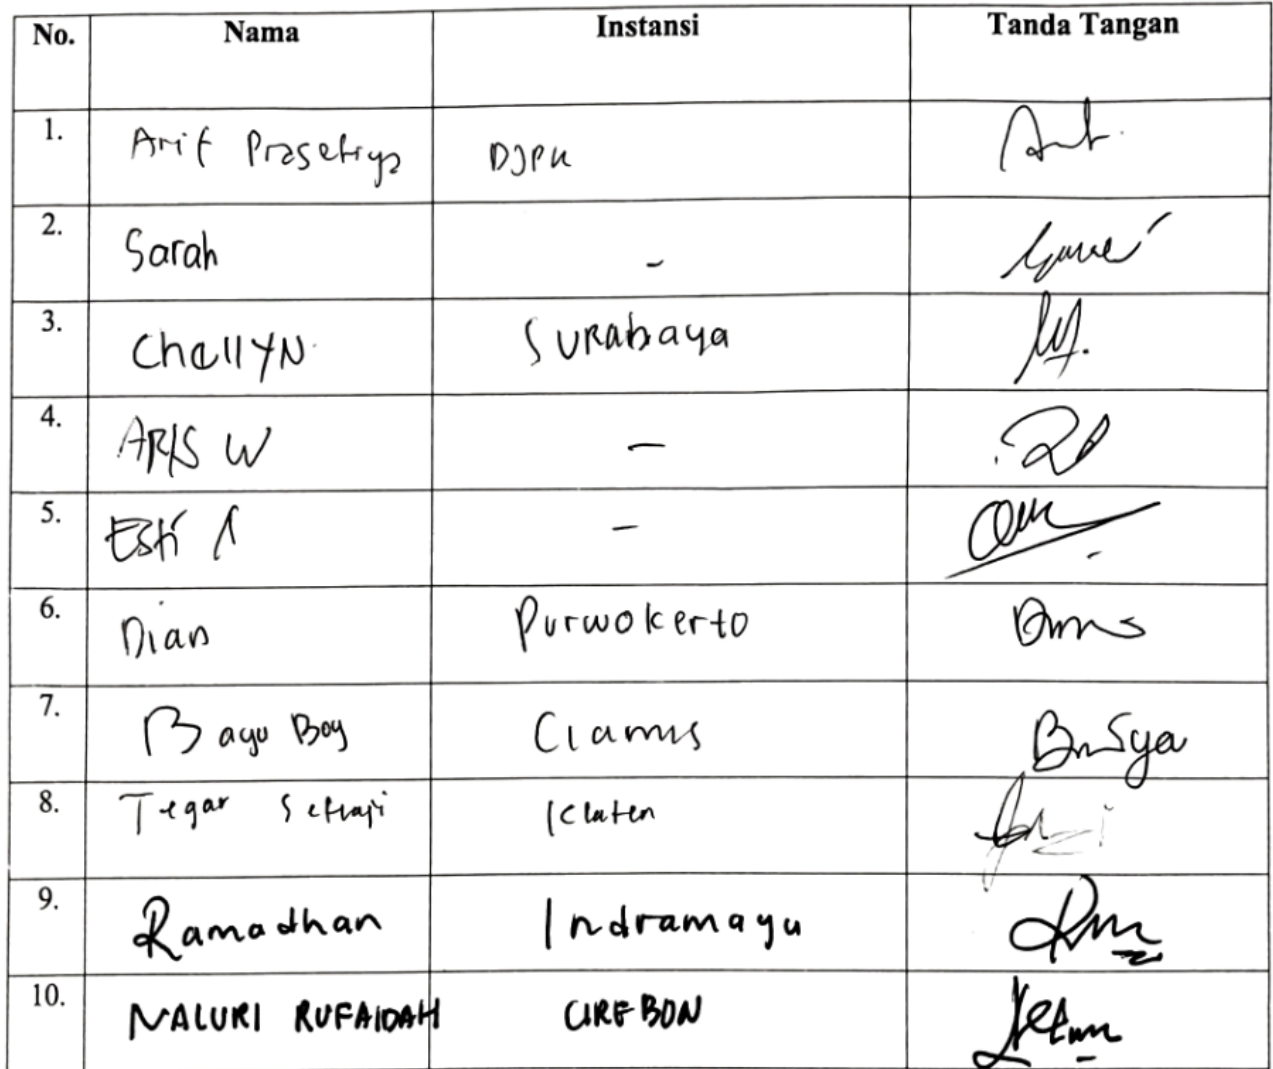 No. Nama Instansi Tanda Tangan
1. Arif Prasetiya DJPK
2. Sarah -
3. Chellyn Surabaya
4. ARIS W -
5. Esti -
6. Dian Purwokerto
7. Bayu Boy Ciamis
8. Tegar Setiaji Klaten
9. Ramadhan Indramayu
10. NALURI RUFAIDAH CIREBON